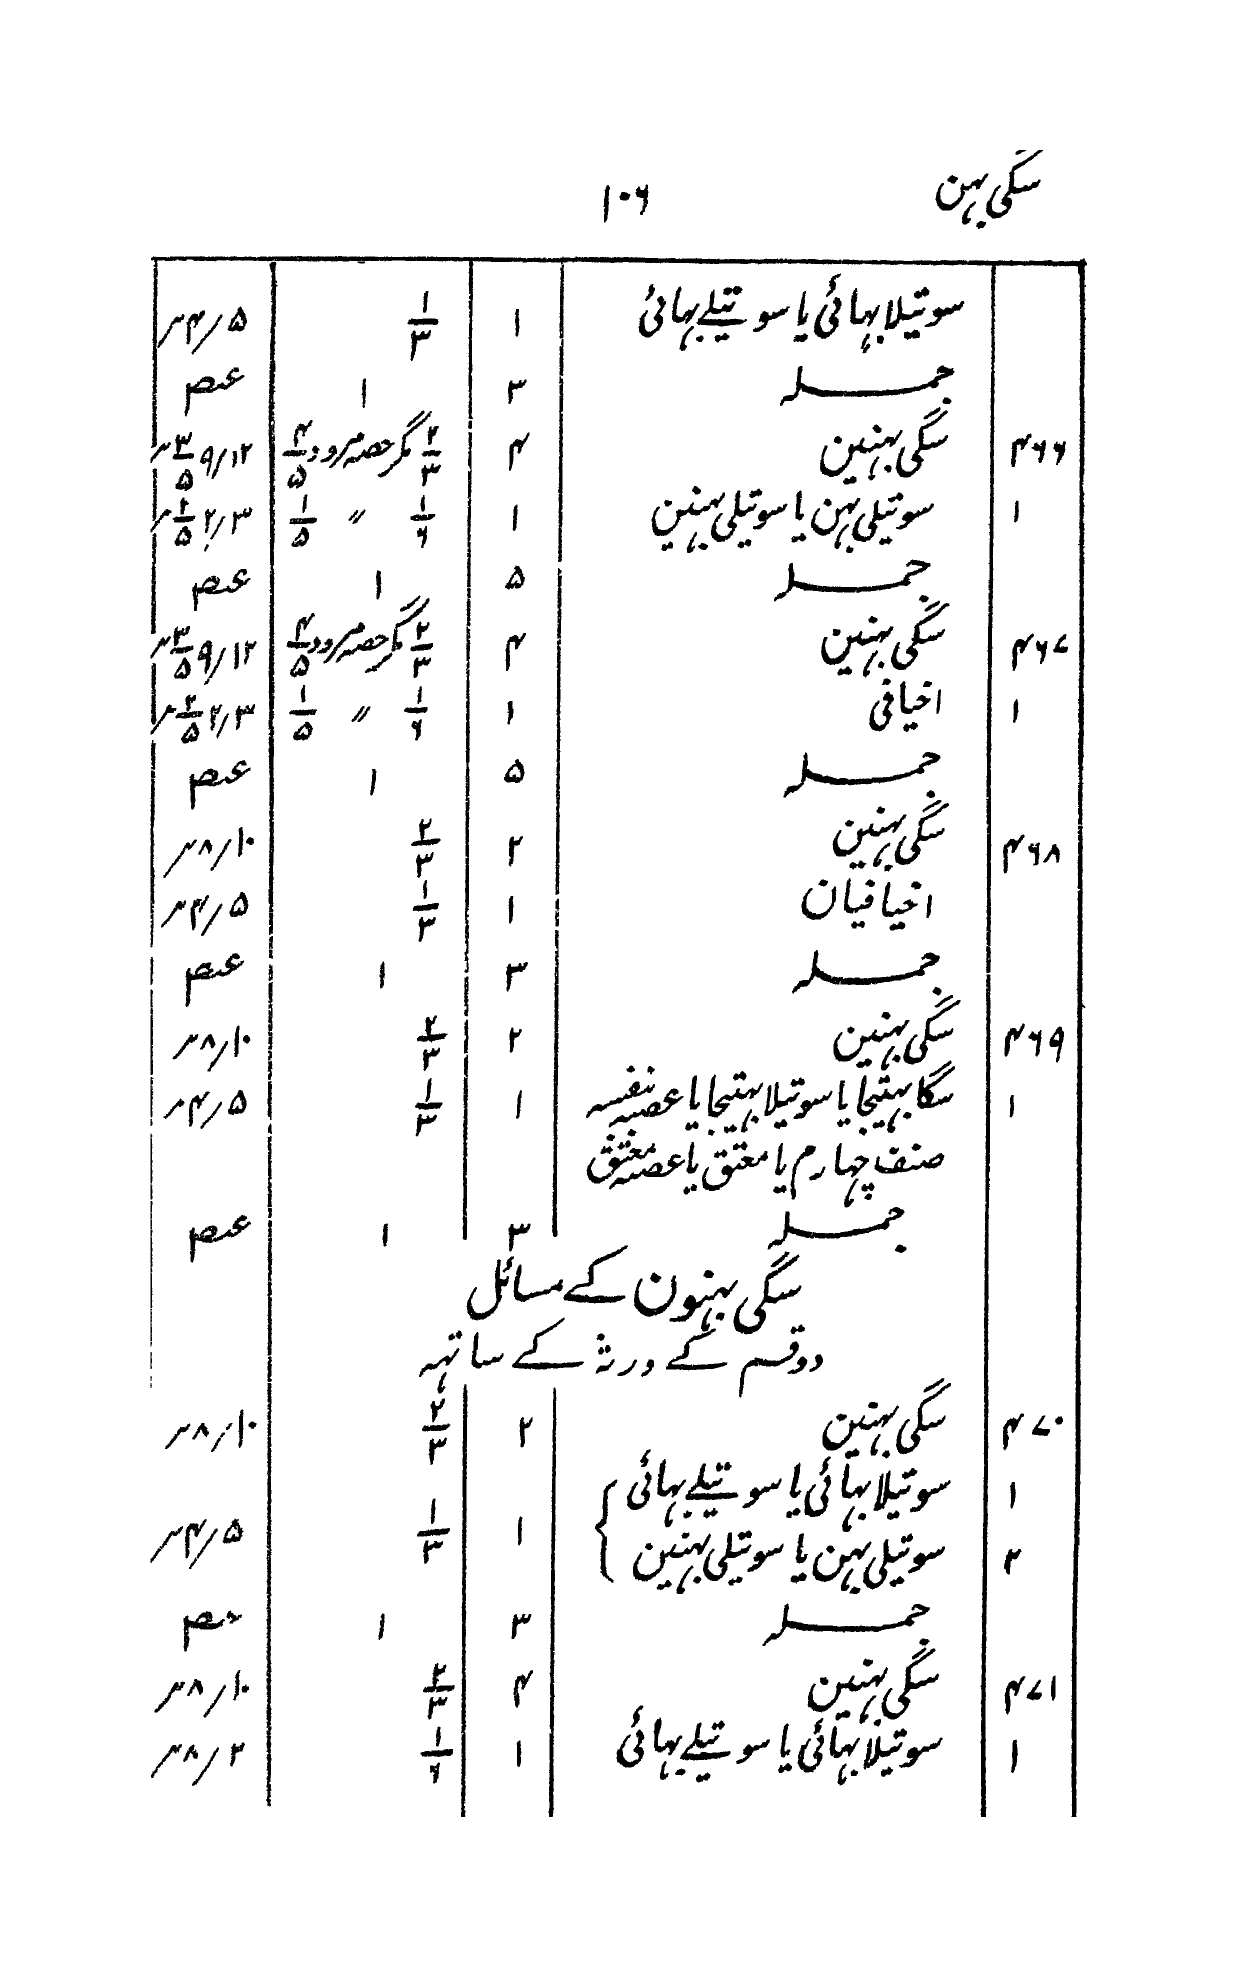 سگی بہن ۱۰۶
سوتیلا بہائی یا سوتیلے بہائی ۱ ۱/۳ ۵/۴
جملہ ۳ ۱ عـہ
۴۶۶ سگی بہنین ۴ ۲/۳ مگر حصہ مردود ۴/۵ ۱۲/۹ ۳/۵
۱ سوتیلی بہن یا سوتیلی بہنین ۱ ۱/۶ 〃 ۱/۵ ۳/۲ ۲/۵
جملہ ۵ ۱ عـہ
۴۶۷ سگی بہنین ۴ ۲/۳ مگر حصہ مردود ۴/۵ ۱۲/۹ ۳/۵
۱ اخیافی ۱ ۱/۶ 〃 ۱/۵ ۳/۲ ۲/۵
جملہ ۵ ۱ عـہ
۴۶۸ سگی بہنین ۲ ۲/۳ ۱۰/۸
اخیافیان ۱ ۱/۳ ۵/۴
جملہ ۳ ۱ عـہ
۴۶۹ سگی بہنین ۲ ۲/۳ ۱۰/۸
۱ سگا بہتیجا یا سوتیلا بہتیجا یا عصبہ نفسہ ۱ ۱/۳ ۵/۴
صنف چہارم یا معتق یا عصبہ معتق
جملہ ۳ ۱ عـہ
سگی بہنون کے مسائل
دو قسم کے ورثہ کے ساتہہ
۴۷۰ سگی بہنین ۲ ۲/۳ ۱۰/۸
۱ سوتیلا بہائی یا سوتیلے بہائی
۲ سوتیلی بہن یا سوتیلی بہنین ۱ ۱/۳ ۵/۴
جملہ ۳ ۱ عـہ
۴۷۱ سگی بہنین ۴ ۲/۳ ۱۰/۸
۱ سوتیلا بہائی یا سوتیلے بہائی ۱ ۱/۶ ۲/۸